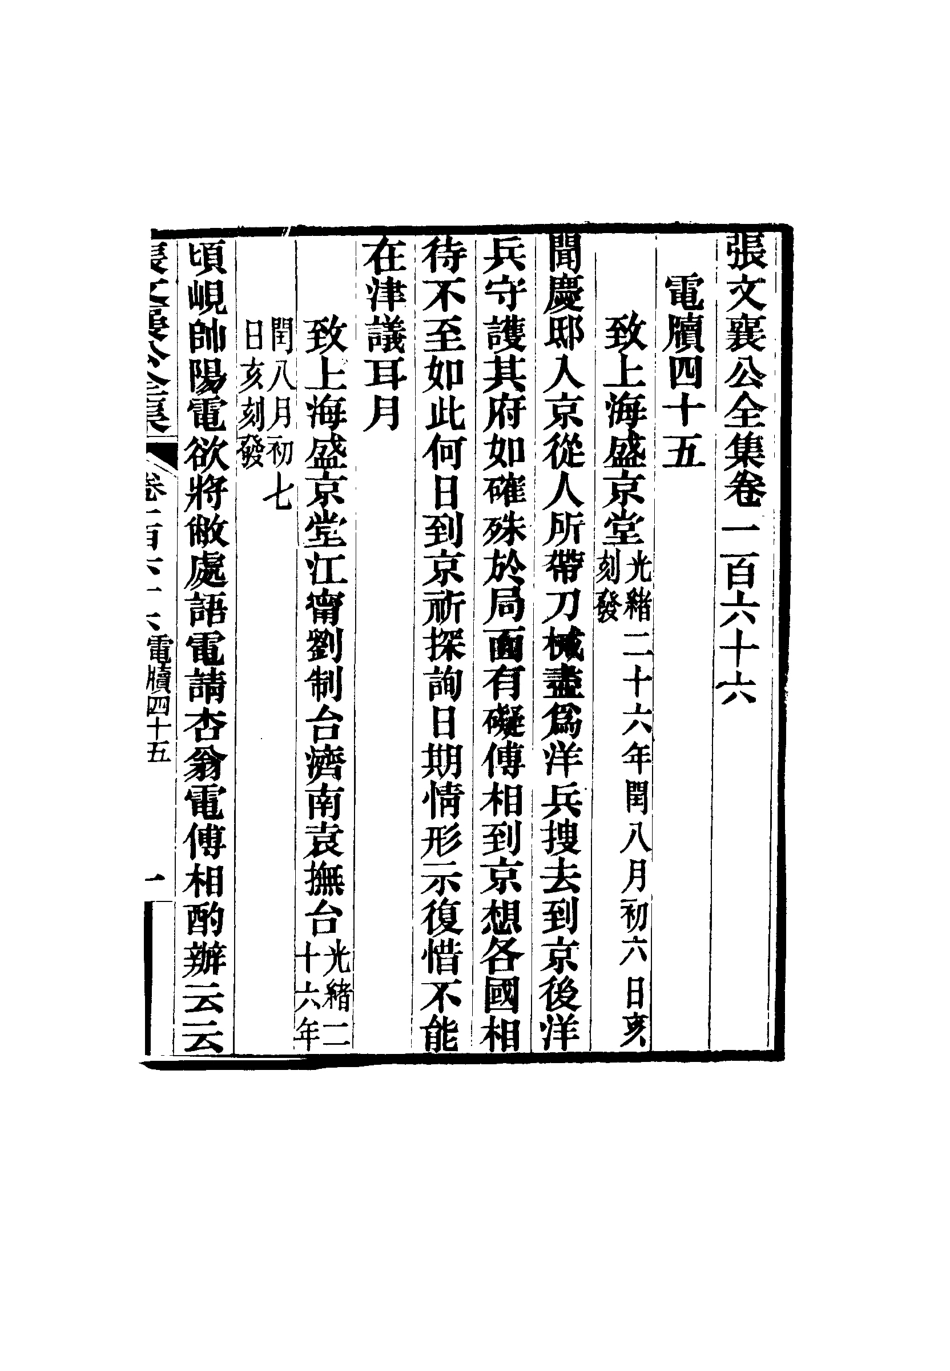 張文襄公全集卷一百六十六
電牘四十五
致上海盛京堂光緒二十六年閏八月初六日亥刻發
聞慶邸入京從人所帶刀械盡爲洋兵搜去到京後洋
兵守護其府如確殊於局面有礙傅相到京想各國相
待不至如此何日到京祈探詢日期情形示復惜不能
在津議耳月
致上海盛京堂江甯劉制台濟南袁撫台光緒二十六年
閏八月初七日亥刻發
頃峴帥陽電欲將敝處語電請杏翁電傅相酌辦云云
張文襄公全集 卷一百六十六 電牘四十五 一